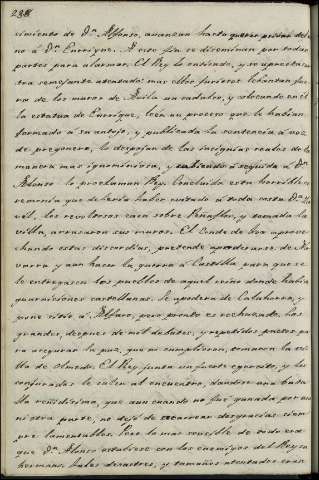 238
cimiento de Dⁿ. Alfonso, avanzan hasta querer privar del tro
no á Dⁿ. Enrrique. A este fin se diseminan por todas
partes para alarmar. El Rey lo entiende, y se apresta con
tra semejante atentado: mas ellos furiosos levantan fue
ra de los muros de Avila un cadalso, y colocando en él
la estatua de Enrrique, leen un proceso que le habian
formado á su antojo, y publicada la sentencia á voz
de pregonero, la despojan de las insignias reales de la
manera mas ignominiosa, y subiendo á seguida á Dⁿ.
Alonso lo proclaman Rey. Concluida esta horrible ce
remonia que deberia haber evitado á toda costa Dⁿ.
los revoltosos caen sobre Peñaflor, y tomada la
villa, arrasaron sus muros. El Conde de Fox aprove
chando estas discordias, pretende apoderarse de Na
varra y aun hacer la guerra á Castilla para que se
le entreguen los pueblos de aquel reino donde habia
guarniciones castellanas. Se apodera de Calahorra, y
pone sitio á Alfaro, pero pronto es rechazado. Los
grandes, despues de mil debates, y repetidos pactos pa
ra asegurar la paz, que no cumplieron, tomaron la vi
lla de Olmedo. El Rey junta un fuerte egercito, y los
conjurados le salen al encuentro, dandose una bata
lla reñidisima, que aun cuando no fué ganada por
nuestra parte, no dejó de acarrear desgracias siem
pre lamentables. Pero lo mas sensible de todo es que
Dⁿ. Alonso estubiese con los enemigos del Rey su
hermano. Tales desastres, y tamaños atentados eran